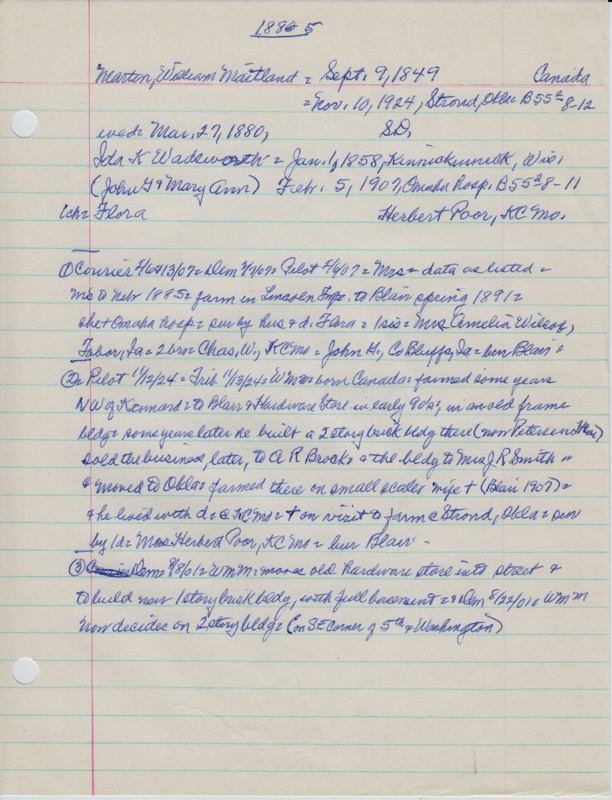 1885
Martin, William Maitland = Sept. 9, 1849 Canada
= Nov. 10, 1924, Stroud, Okla = B55² 8-12
wed = Mar. 27, 1880, SD.
Ida K Wadsworth = Jan. 1, 1858, Kinnickinnick, Wis.
(John G & Mary Ann) Feb. 5, 1907, Omaha hosp. B55² 8-11
1ch = Flora Herbert Poor, KC Mo.
① Courier 2/6&13/07 = Dem 2/7/07 = Pilot 2/6/07 = Mrs = data as listed =
Ms to Nebr 1885 = farm in Lincoln Twp. to Blair spring 1891 =
she + Omaha hosp = sur by hus & d. Flora = 1 sis = Mrs Amelia Wilcox,
Tabor, Ia = 2 bro = Chas. W, KC Mo = John H., Co Bluffs, Ia = bur Blair =
② = Pilot 11/12/24 = Trib 11/13/24 = WMM = born Canada = farmed some years
NW of Kennard = to Blair & Hardware Store in early 90's, in an old frame
bldg = some years later he built a 2 story brick bldg there (now Petersen
sold the business, later, to A R Brock & the bldg to Mrs J R Smith =
& moved to Okla = farmed there on small scale = wife + (Blair 1907) =
& he lived with d @ KC Mo = + on visit to farm @ Stroud, Okla = sur
by 1d = Mrs Herbert Poor, KC Mo = bur Blair -
③ Dem = 8/8/01 = WMM = moves old hardware store into street &
to build new 1 story brick bldg, with full basement = & Dem 8/22/01 = WMM
now decides on 2 story bldg = (on SE corner of 5th & Washington)